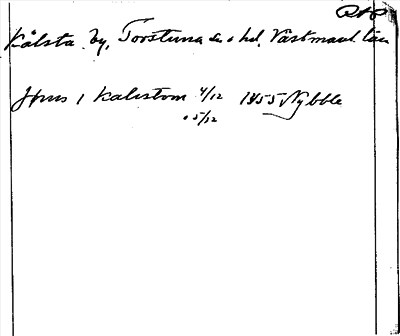 RAP
Kålsta by, Torstuna sn o hd, Västmanl. län
Hans i Kalistom 4/12 1455 Nybble
o 5/12